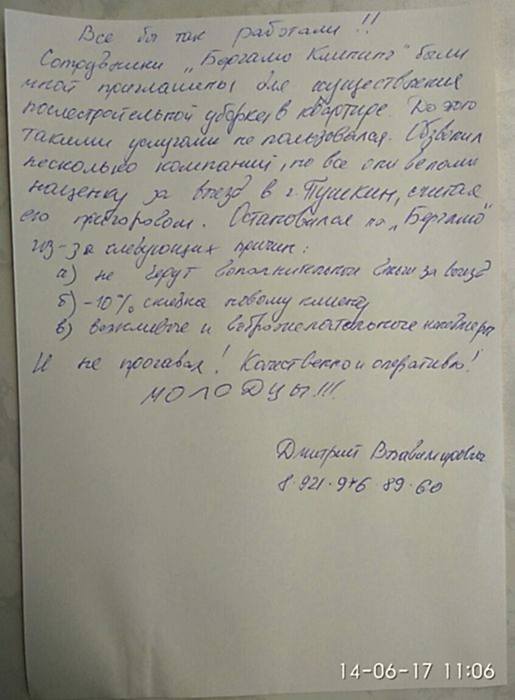 Все бы так работали!!
Сотрудники "Бергамо Клининг" были
мной приглашены для осуществления
послестроительной уборки в квартире. До этого
такими услугами не пользовался. Обзвонил
несколько компаний, но все они делали
наценку за въезд в г. Пушкин, считая
его пригородом. Остановился на "Бергамо"
из-за следующих причин:
а) не берут дополнительной за выезд
б) -10% скидка новому клиенту
в) вежливые и доброжелательные менеджеры
И не прогадал! Качественно и оперативно!
МОЛОДЦЫ!!!
Дмитрий Владимирович
8-921-976-89-60
14-06-17 11:06